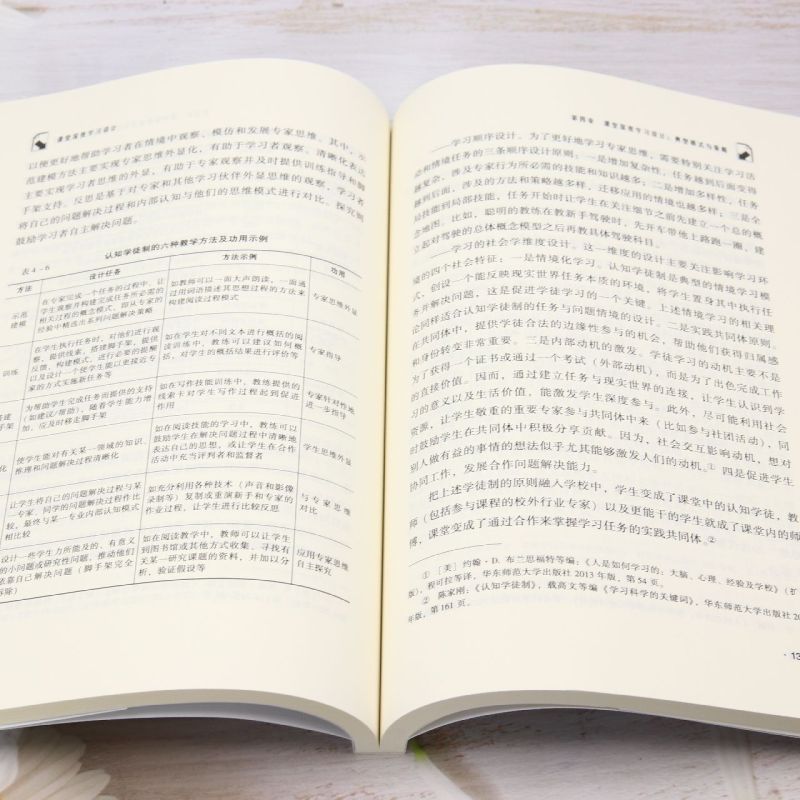 课堂深度学习设计
以便更好地帮助学习者在情境中观察、模仿和发展专家思维。其中,示
范建模方法主要实现专家思维外显化,有助于学习者的观察。清晰化表达
主要实现学习者思维的外显,有助于专家观察并及时提供训练指导和脚
手架支持。反思是基于对专家和其他学习伙伴外显思维的观察,学习者
将自己的问题解决过程和内部认知与他们的思维模式进行对比。探究则
鼓励学习者自主解决问题。
表4-6 认知学徒制的六种教学方法及功用示例
方法 设计任务 方法示例 功用
示范建模 在专家完成一个任务的过程中,让
学生观察并构建完成任务所必需的
相关过程的概念模式,即从专家的
经验中精选出系列问题解决策略
如教师可以一面大声朗读,一面通
过用词语描述其思想过程的方法来
构建阅读过程模式
专家思维外显
训练 在学生执行任务时,对他们进行观
察,提供线索,搭建脚手架,提供
反馈,构建模式,进行必要的提醒
以及设计一个使学生能以更接近专
家的方式实施新任务等
如在学生对不同文本进行概括的阅
读训练中,教练可以建议如何概
括,对学生的概括结果进行评价等
专家指导
建
手架
为帮助学生完成任务而提供的支持
(如建议/帮助),随着学生能力增
加,应及时移走脚手架
如在写作技能训练中,教练提供的
线索卡对学生写作过程起到促进
作用
专家针对性地
进一步指导
化 使学生能对有关某一领域的知识、
推理和问题解决过程清晰化
如在阅读技能的学习中,教练可以
鼓励学生在解决问题过程中清晰地
表达自己的思想,或让学生在合作
活动中充当评判者和监督者
学生思维外显
让学生将自己的问题解决过程与某
一专家、同学的问题解决过程作比
较,最终与某一专业内部认知模式
相比较
如充分利用各种技术(声音和影像
录制等)复制或重演新手和专家的
作业过程,让学生进行比较反思
与专家思维
对比
设计一些学生力所能及的、有意义
的小问题或研究性问题,推动他们
依靠自己解决问题(脚手架完全
拆除)
如在阅读教学中,教师可以让学生
到图书馆或其他方式收集、寻找有
关某一研究课题的资料,并加以分
析,验证假设等
应用专家思维
自主探究
第四章 课堂深度学习设计:典型模式与策略
——学习顺序设计。为了更好地学习专家思维,需要特别关注学习活
动和情境任务的三条顺序设计原则:一是增加复杂性,任务越到后面变得
越复杂,涉及专家行为所必需的技能和知识越多;二是增加多样性,任务
越到后面,涉及的方法和策略越多样,迁移应用的情境也越多样;三是全
局技能到局部技能,任务开始时让学生在关注细节之前先建立一个总的概
念地图。比如,聪明的教练在教新手驾驶时,先开车带他上路跑一圈,建
立起对驾驶的总体概念模型之后再教具体驾驶科目。
——学习的社会学维度设计。这一维度的设计主要关注影响学习环
境的四个社会特征:一是情境化学习。认知学徒制是典型的情境学习模
式,创设一个能反映现实世界任务本质的环境,将学生置身其中执行任
务并解决问题,这是促进学徒学习的一个关键。上述情境学习的相关理
论同样适合认知学徒制的任务与问题情境的设计。二是实践共同体原则。
在共同体中,提供学徒合法的边缘性参与的机会,帮助他们获得归属感
和身份转变非常重要。三是内部动机的激发。学徒学习的动机主要不是
为了获得一个证书或通过一个考试(外部动机),而是为了出色完成工作
的直接价值。因而,通过建立任务与现实世界的连接,让学生认识到学
习的意义以及生活价值,能激发学生深度参与。此外,尽可能利用社会
资源,让学生敬重的重要专家参与共同体中来(比如参与社团活动),同
时鼓励学生在共同体中积极分享贡献。因为,社会交互影响动机,想对
别人做有益的事情的想法似乎尤其能够激发人们的动机。① 四是促进学生
协同工作,发展合作问题解决能力。
把上述学徒制的原则融入学校中,学生变成了课堂中的认知学徒,教
师(包括参与课程的校外行业专家)以及更能干的学生就成了课堂内的师
傅,课堂变成了通过合作来掌握学习任务的实践共同体。②
① [美]约翰·D.布兰思福特等编:《人是如何学习的:大脑、心理、经验及学校》(扩
版),程可拉等译,华东师范大学出版社2013年版,第54页。
② 陈家刚:《认知学徒制》,载高文等编《学习科学的关键词》,华东师范大学出版社20
年版,第161页。
·13